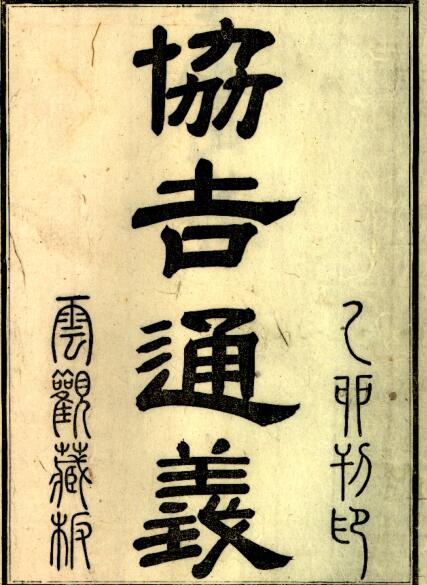 乙卯刊印
協吉通義
雲觀藏板